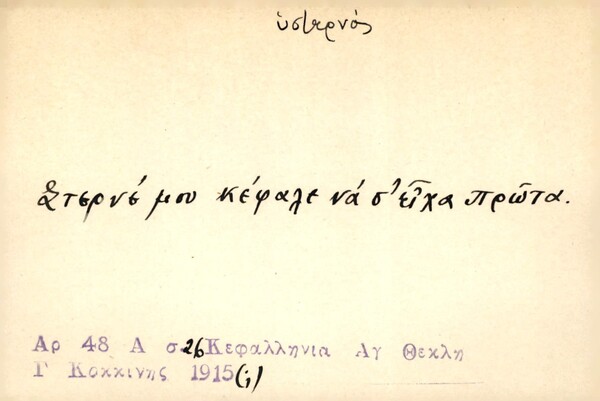 ὑστερνός
Στερνέ μου κέφαλε νά σ' εἶχα πρῶτα.
Αρ 48 Α σ 26 Κεφαλληνια Αγ Θεκλη
Γ Κοκκινης 1915 (;)